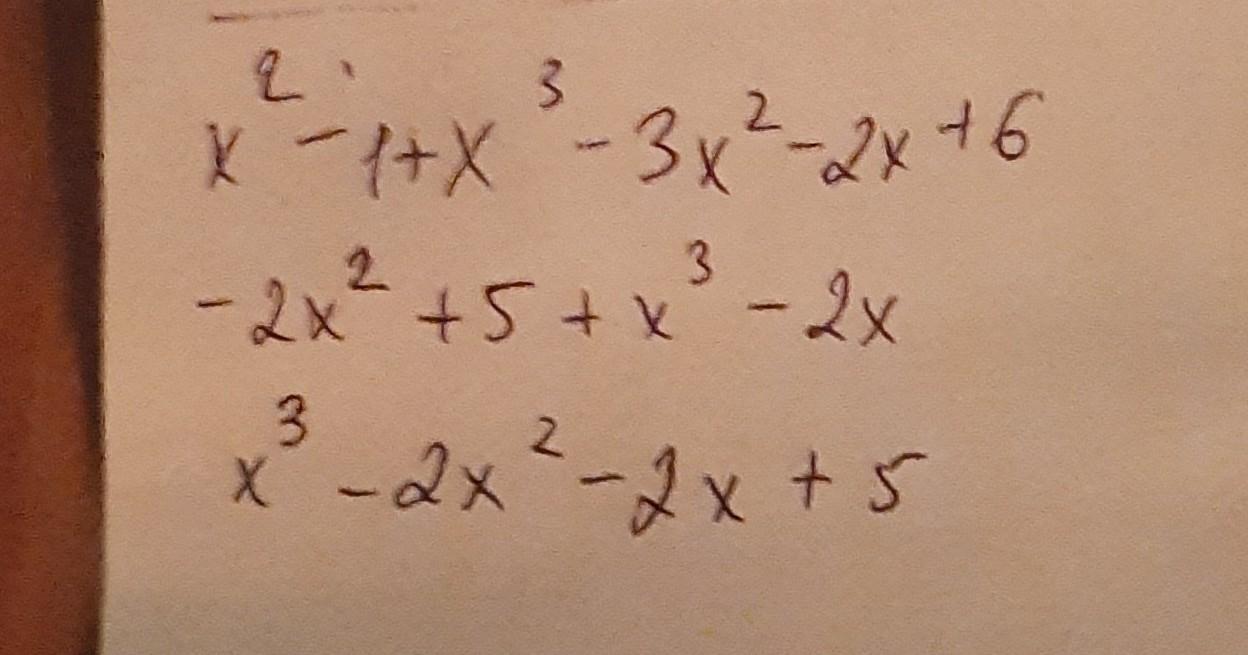 x² - 1 + x³ - 3x² - 2x + 6
- 2x² + 5 + x³ - 2x
x³ - 2x² - 2x + 5